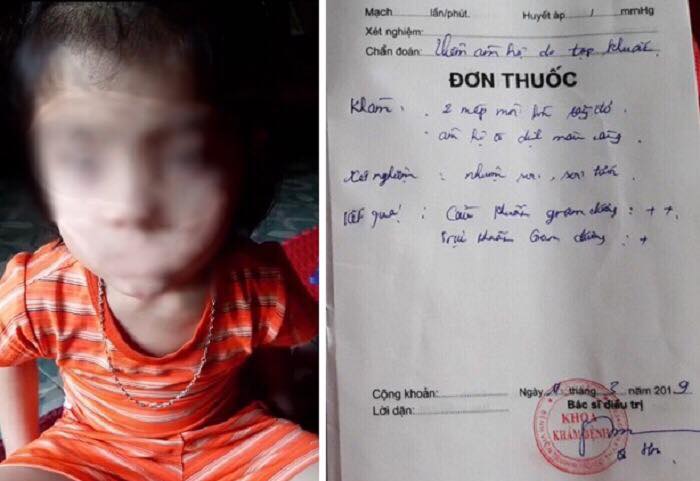 Mạch lần/phút. Huyết áp / mmHg
Xét nghiệm:
Chẩn đoán: Viêm âm hộ do tạp khuẩn.
ĐƠN THUỐC
Khám: 2 mép môi đỏ
âm hộ dịch màu vàng
Xét nghiệm: nhuộm soi, soi tươi
Kết quả: Cầu khuẩn gram dương: ++.
Trực khuẩn Gram dương: +
Cộng khoản:
Ngày tháng 3 năm 2019
Lời dặn:
Bác sĩ điều trị
KHOA
KHÁM BỆNH